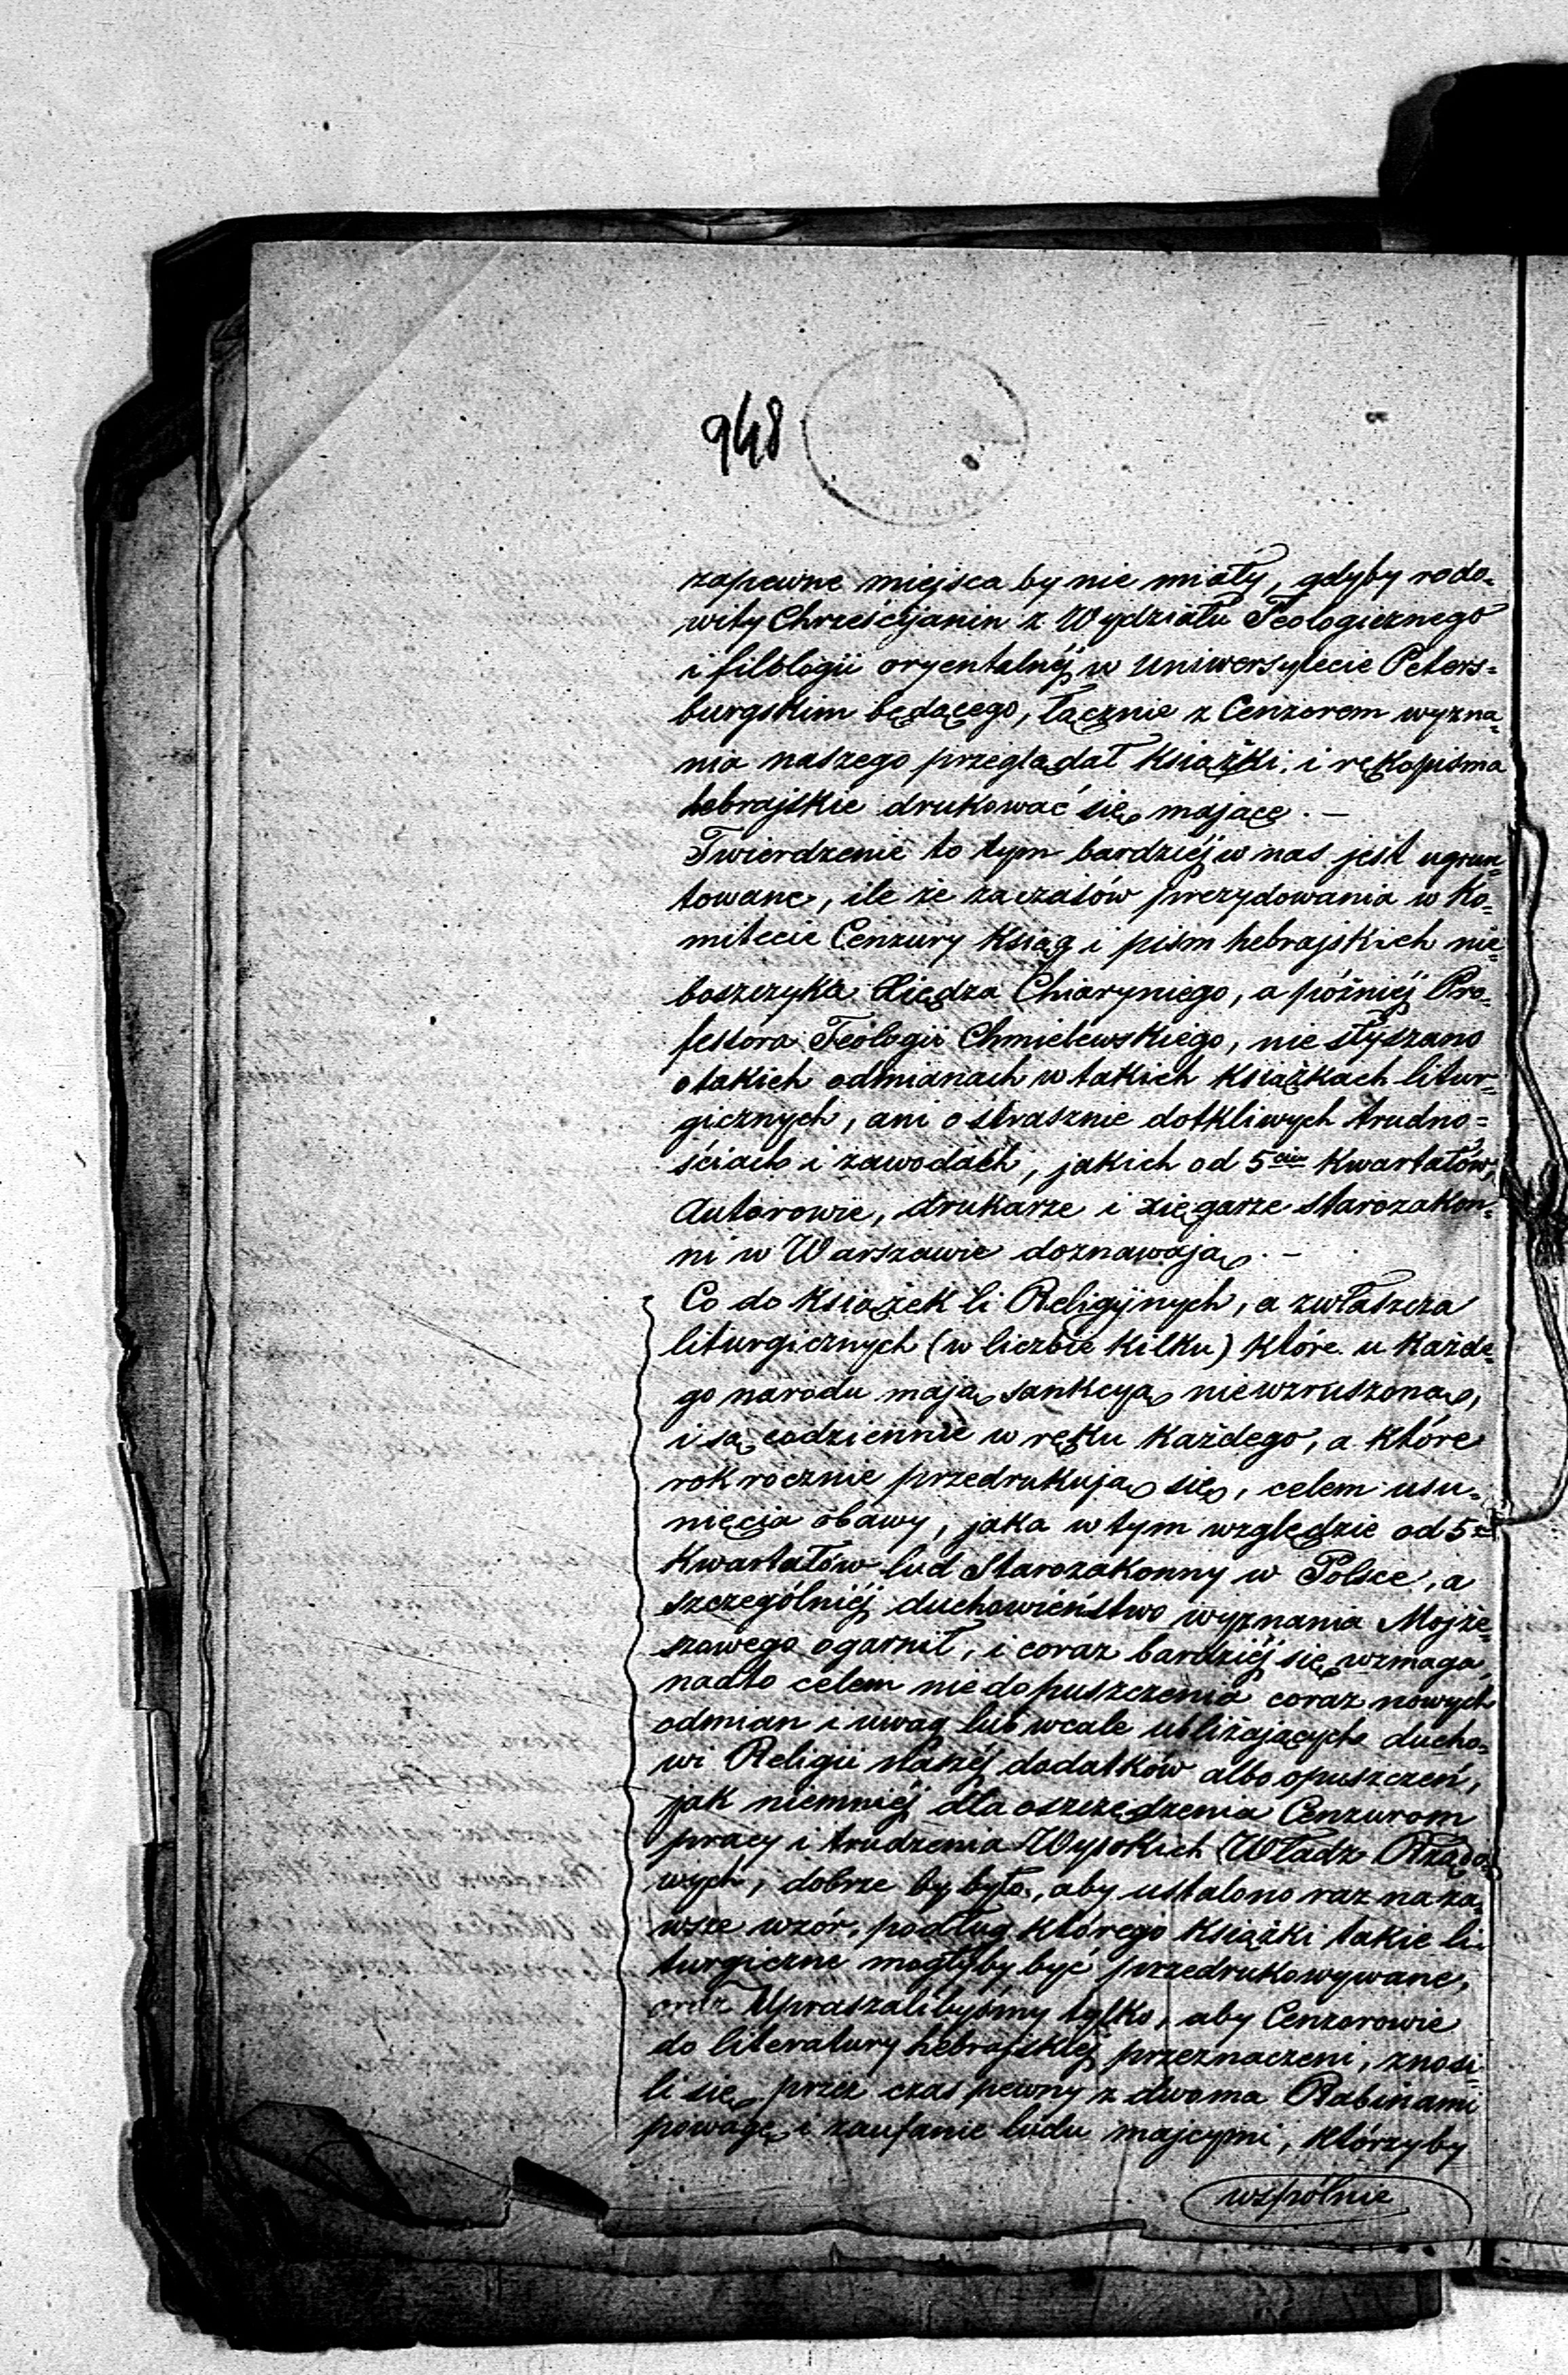 948
zapewne miejsca by nie miały, gdyby rodo-
wity Chrześcijanin z Wydziału Teologicznego
i filologii oryentalnéj w Uniwersytecie Peters-
burgskim będącego, łącznie z Cenzorem wyzna-
nia naszego przeglądał Książki, i rękopisma
hebrajskie drukować się mające. —
Twierdzenie to tym bardziéj w nas jest ugrun-
towane, ile że za czasów prezydowania w Ko-
mitecie Cenzury Ksiąg i pism hebrajskich nie-
boszczyka Xiędza Chiaryniego, a późniéj Pro-
fessora Teologii Chmielewskiego, nie słyszano
o takich odmianach w takich Książkach litur-
gicznych, ani o strasznie dotkliwych trudno-
ściach i zawodach, jakich od 5ciu Kwartałów,
Autorowie, drukarze i xięgarze starozakon-
ni w Warszawie doznawają. —
Co do Książek li Religijnych, a zwłaszcza
liturgicznych (w liczbie Kilku) Które u Każde-
go narodu mają sankcyą niewzruszoną,
i są codziennie w ręku Każdego, a Które
rok rocznie przedrukują się, celem usu-
nięcia obawy, jaka w tym względzie od 5
Kwartałów lud Starozakonny w Polsce, a
szczególniéj duchowieństwo wyznania Mojże-
szowego ogarnił, i coraz bardziéj się wzmaga,
nadto celem niedopuszczenia coraz nowych
odmian i uwag lub wcale ubliżających ducho-
wi Religii Naszéj dodatków albo opuszczeń,
jak niemniéj dla oszczędzenia Cenzurom
pracy i trudzenia Wysokich Władz Rządo-
wych, dobrze by było, aby ustalono raz na za-
wsze wzór, podług Którego Książki takie li-
turgiczne mogłyby być przedrukowywane,
oraz Upraszalibyśmy tylko, aby Cenzorowie
do literatury hebrajskiéj przeznaczeni, znosi-
li się przez czas pewny z dwoma Rabinami
powagę i zaufanie ludu majcymi, Którzyby
wspólnie